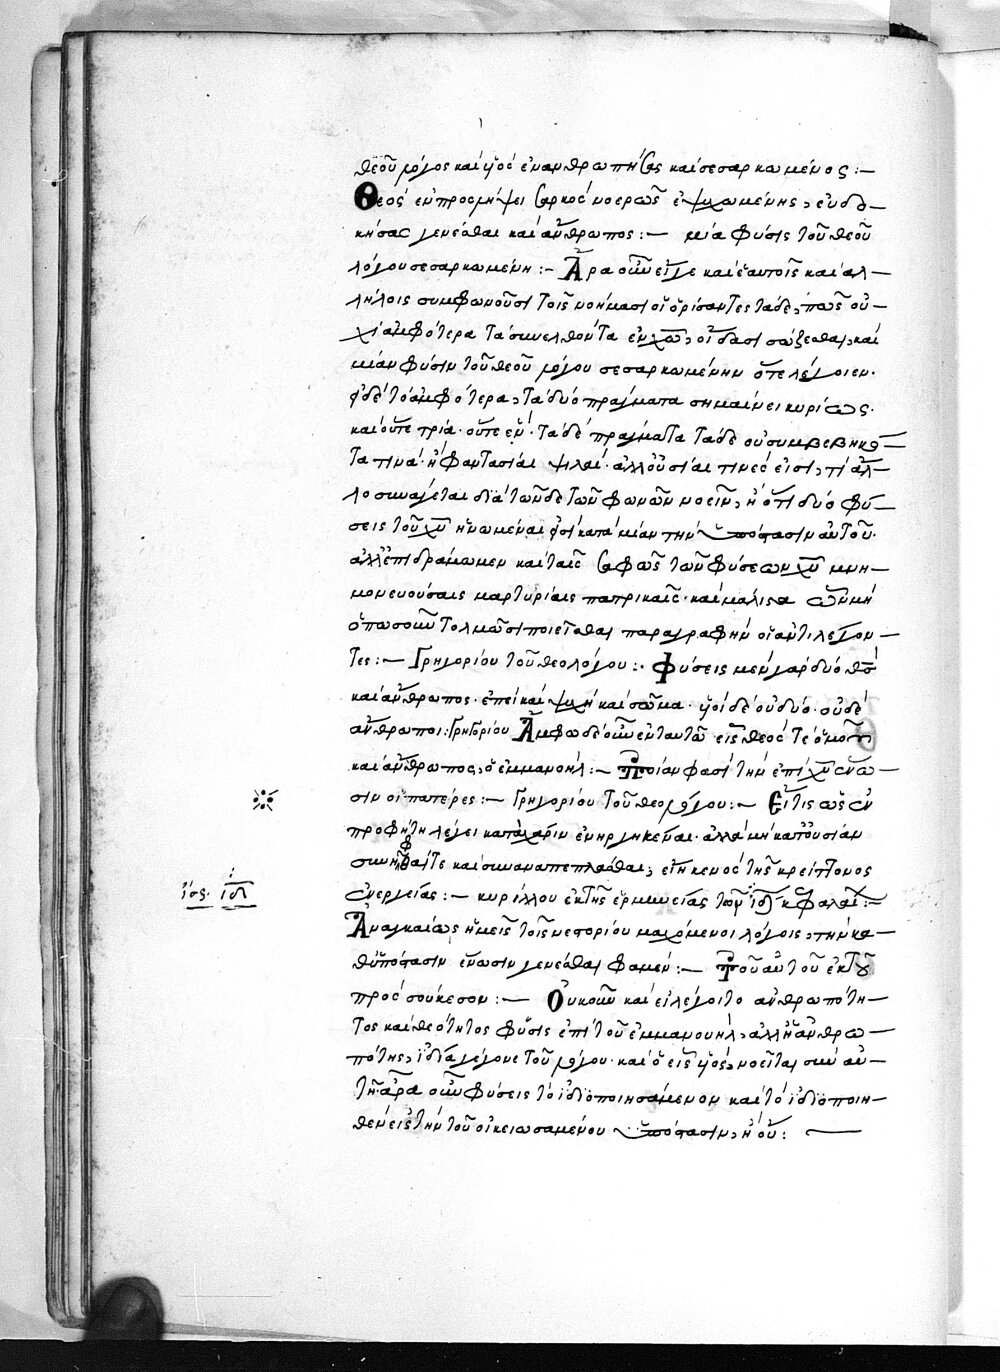 θεοῦ λόγος καὶ υἱὸς ἐνανθρωπήσας καὶ σεσαρκωμένος :—
Θεὸς ἐν προσλήψει σαρκὸς νοερῶς ἐψυχωμένης, εὐδο—
κήσας γενέσθαι καὶ ἄνθρωπος :— μία φύσις τοῦ θεοῦ
λόγου σεσαρκωμένη :— Ἆρα οὖν εἴγε καὶ ἑαυτοῖς καὶ ἀλ—
λήλοις συμφωνοῦσι τοῖς νοήμασι οἱ ὁρίσαντες τάδε, πῶς οὐ—
χὶ ἀμφότερα τὰ συνελθόντα ἐν χῶ, οἴδασι σώζεσθαι, καὶ
μίαν φύσιν τοῦ θεοῦ λόγου σεσαρκωμένην ὅτε λέγοιεν·
τὸ ἀμφότερα, τὰ δύο πράγματα σημαίνει κυρίως·
καὶ οὔτε τρία· οὔτε ἕν· τὰ δὲ πράγματα τάδε οὐ συμβεβηκό—
τα τινὰ· ἢ φαντασίαι ψιλαὶ· ἀλλ' οὐσίαι τινές εἰσι, τί ἄλ—
λο συνάγεται διὰ τῶνδε τῶν φωνῶν νοεῖν, ἢ ὅτι δύο φύ—
σεις τοῦ χῦ ἡνωμέναι εἰσὶ κατὰ μίαν τὴν ὑπόστασιν αὐτοῦ·
ἀλλ' ἐπιδράμωμεν καὶ ταῖς σαφῶς τῶν φύσεων χῦ μνη—
μονευούσαις μαρτυρίαις πατρικαῖς· καὶ μάλιστα ὧν μὴ
ὁπωσοῦν τολμῶσι ποιεῖσθαι παραγραφὴν οἱ ἀντιλέγον—
τες :— Γρηγορίου τοῦ θεολόγου :· Φύσεις μὲν γὰρ δύο θσ
καὶ ἄνθρωπος· ἐπεὶ καὶ ψυχὴ καὶ σῶμα· υἱοὶ δὲ οὐ δύο· οὐδὲ
ἄνθρωποι : Γρηγορίου Ἄμφω δὲ οὖν ἐν ταυτῶ εἷς θεός τε ὁμοῦ
καὶ ἄνθρωπος, ὁ ἐμμανουήλ :— Ποίαν φασὶ τὴν ἐπὶ χῦ ἕνω—
σιν οἱ πατέρες :— Γρηγορίου τοῦ θεολόγου :— Εἴ τις ὡς ἐν
προφήτη λέγει κατὰ χάριν ἐνηργηκέναι· ἀλλὰ μὴ κατ' οὐσίαν
συνῆφθαί τε καὶ συναναπεπλάσθαι, εἴη κενὸς τῆς κρείττονος
ἐνεργείας :— κυρίλλου ἐκ τῆς ἑρμηνείας τῶν ιβ κεφαλαί :—
Ἀναγκαίως ἡμεῖς τοῖς νεστορίου μαχόμενοι λόγοις, τὴν κα—
θ' ὑπόστασιν ἕνωσιν γενέσθαι φαμέν :— Τοῦ αὐτοῦ ἐκ τοῦ
πρὸς σούκεσον :— Οὐκοῦν καὶ εἰ λέγοιτο ἀνθρωπότη—
τος καὶ θεότητος φύσις ἐπὶ τοῦ ἐμμανουήλ, ἀλλ' ἡ ἀνθρω—
πότης, ἰδία γέγονε τοῦ λόγου· καὶ ὁ εἷς υἱὸς, νοεῖται σὺν αὐ—
τῆ ἆρα οὖν φύσεις τὸ ἰδιοποιησάμενον καὶ τὸ ἰδιοποιη—
θὲν εἰς τὴν τοῦ οἰκειωσαμένου ὑπόστασιν, ἢ οὔ : —